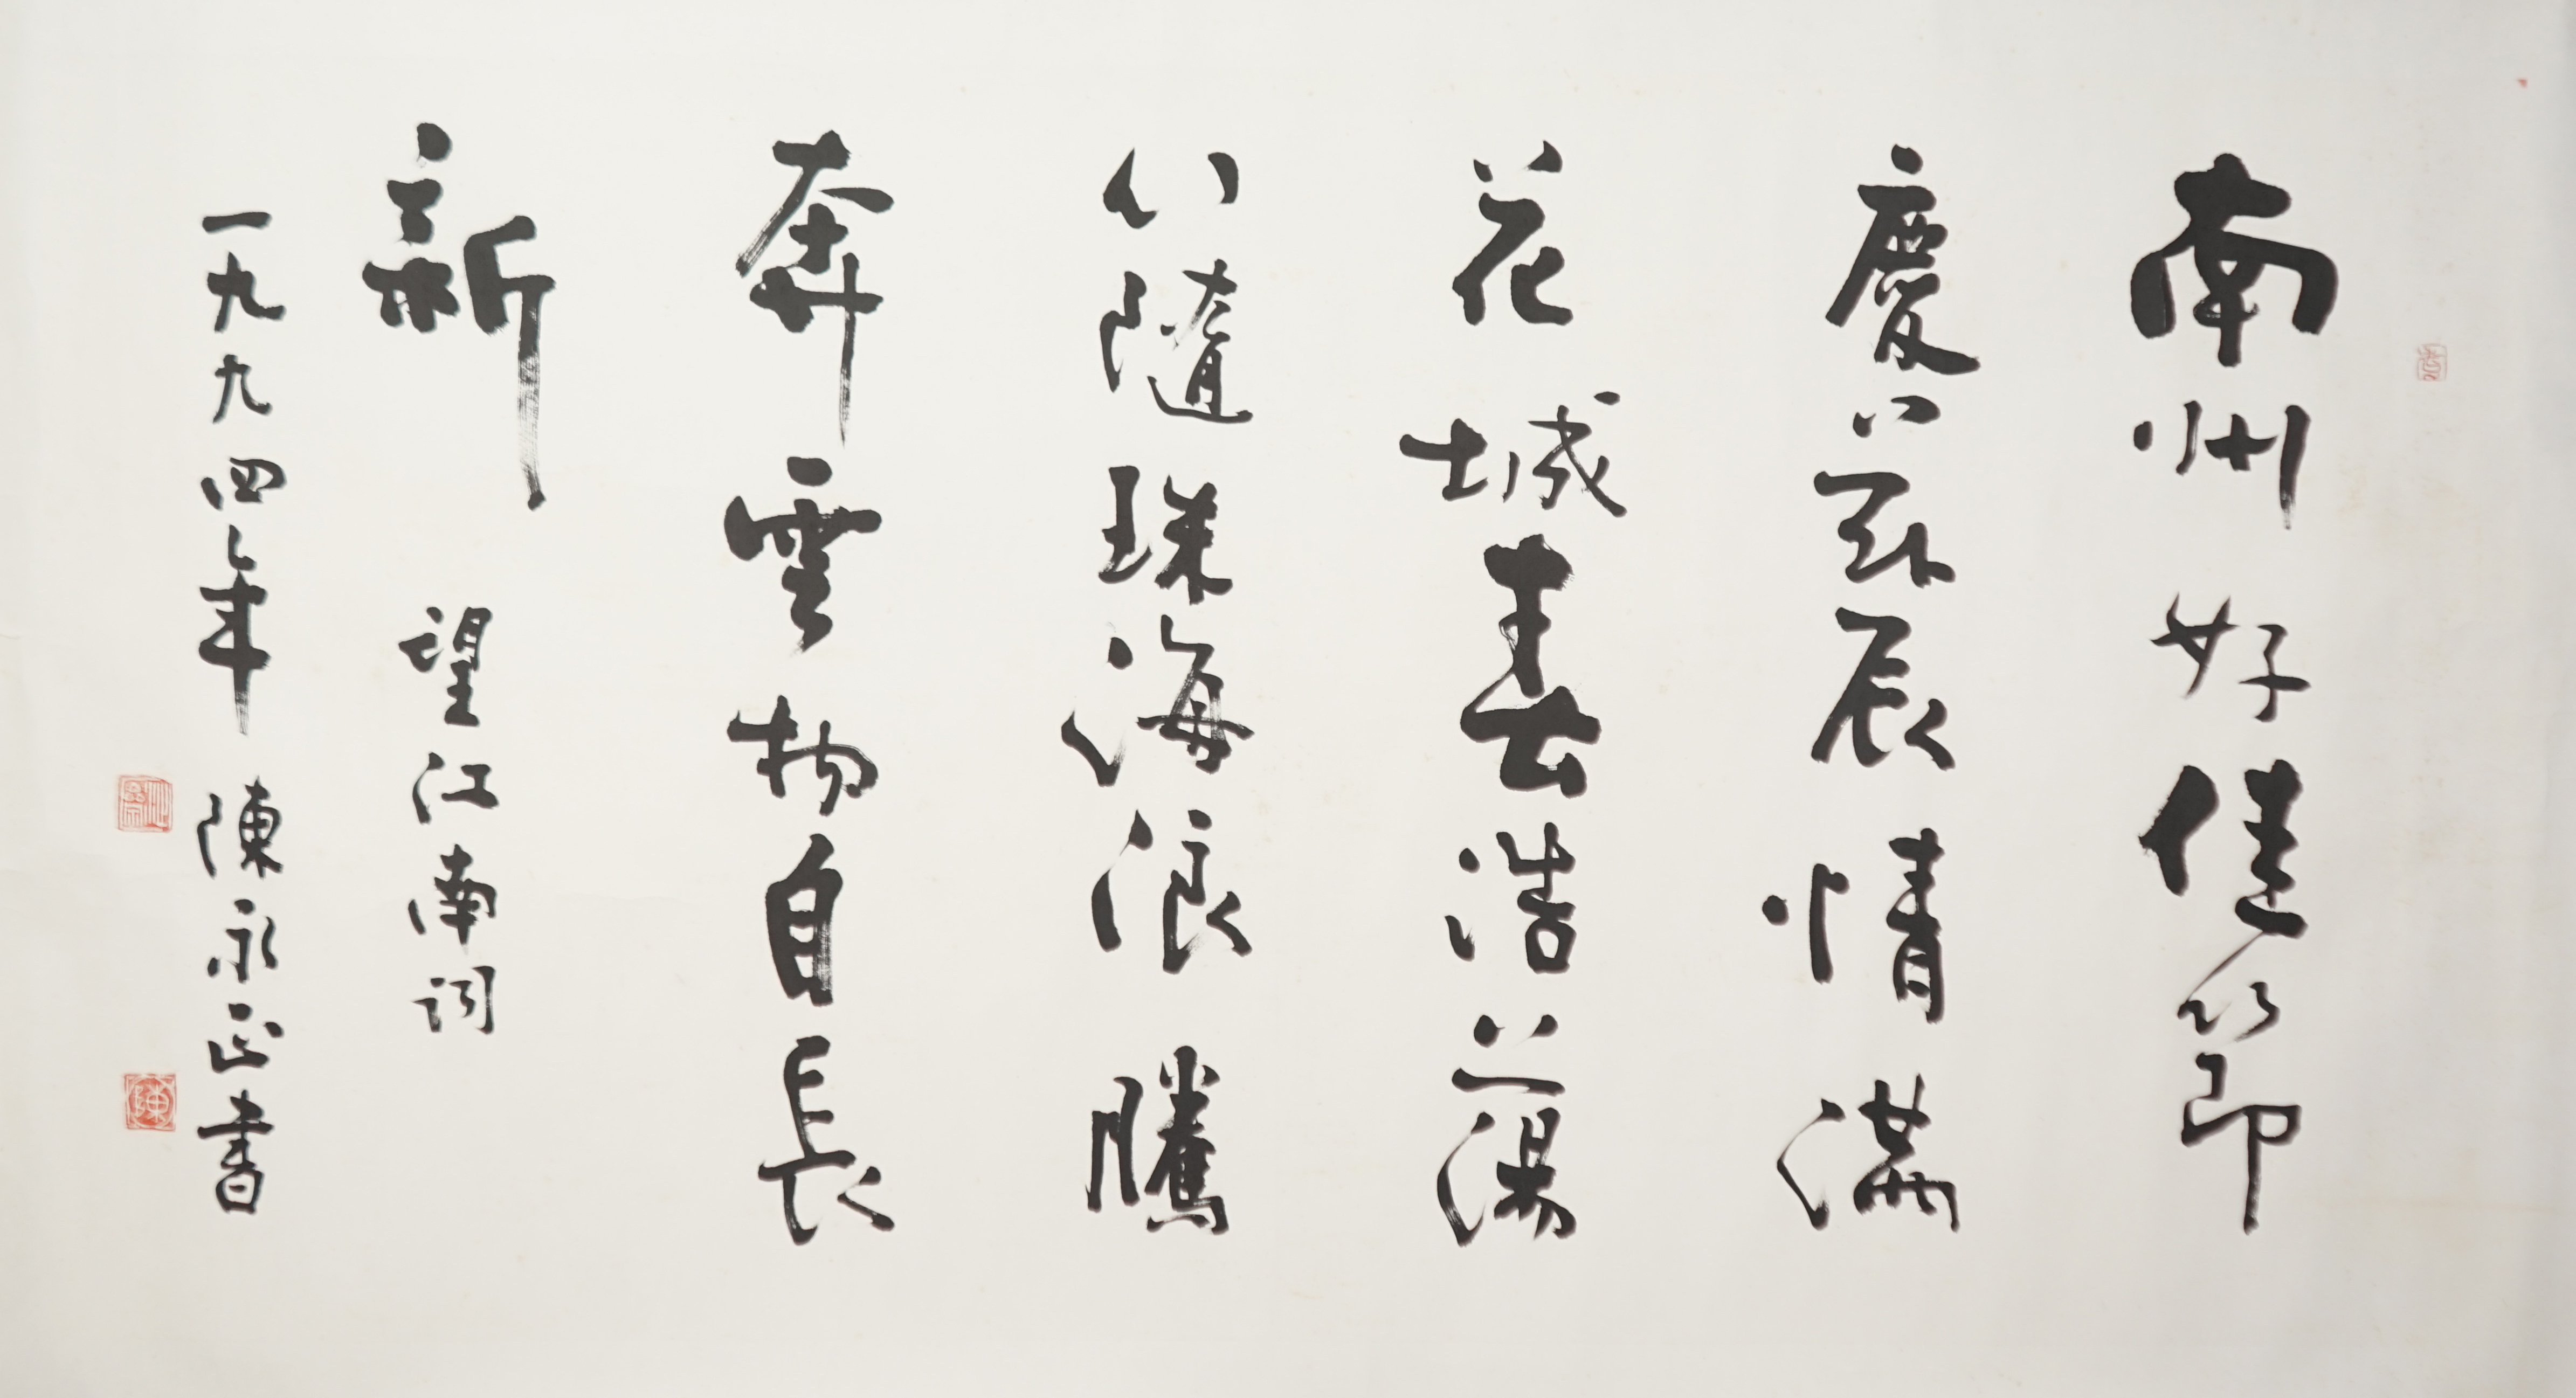 南州好佳節
慶茲辰情滿
花城春浩蕩
心隨珠海浪騰
奔雲物自長
新
望江南詞
一九九四年 陳永正書
沚齋
陳